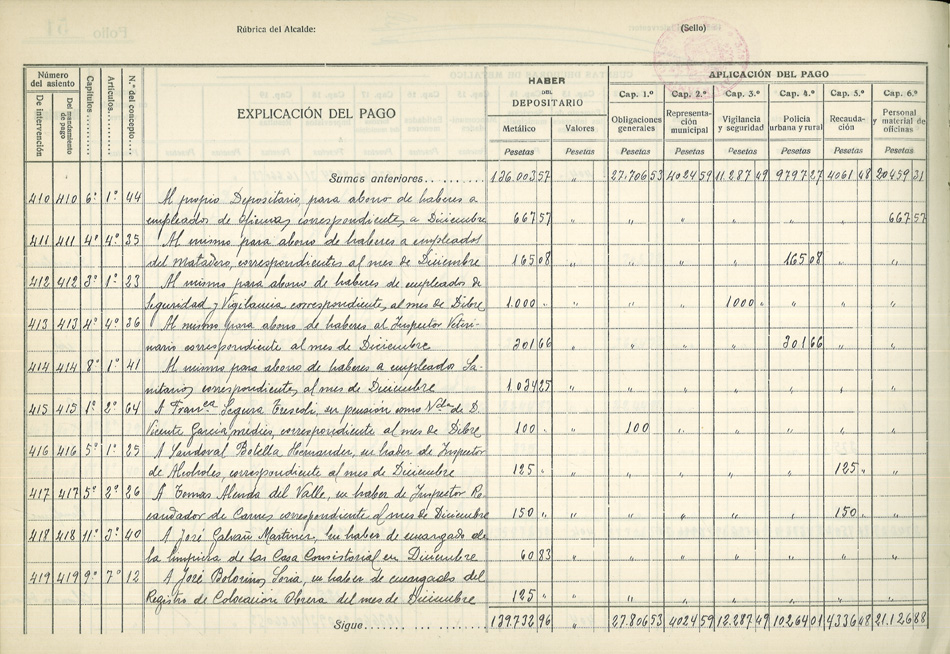 Rúbrica del Alcalde: (Sello)
Número del asiento
De Intervención
Del mandamiento de pago
Capítulos
Artículos
N.º del concepto
EXPLICACIÓN DEL PAGO
HABER DEL DEPOSITARIO
Metálico Valores
Pesetas Pesetas
APLICACIÓN DEL PAGO
Cap. 1.º Cap. 2.º Cap. 3.º Cap. 4.º Cap. 5.º Cap. 6.º
Obligaciones generales Representación municipal Vigilancia y seguridad Policía urbana y rural Recaudación Personal y material de oficinas
Pesetas Pesetas Pesetas Pesetas Pesetas Pesetas
Sumas anteriores 136.003 57 " 27.706 53 4024 59 11.287 49 9797 27 4061 48 20459 31
410 410 6º 1º 44 Al propio Depositario, para abono de haberes a
empleados de Oficinas, correspondiente, a Diciembre 667 57 " " " " " " 667 57
411 411 4º 4º 35 Al mismo para abono de haberes a empleados
del Matadero, correspondientes al mes de Diciembre 165 08 " " " " 165 08 " "
412 412 3º 1º 23 Al mismo para abono de haberes de empleados de
Seguridad y Vigilancia correspondiente, al mes de Dibre 1.000 " " " " 1000 " " " "
413 413 4º 4º 36 Al mismo para abono de haberes al Inspector Veteri-
nario correspondiente al mes de Diciembre 301 66 " " " " 301 66 " "
414 414 8º 1º 41 Al mismo para abono de haberes a empleados Sa-
nitarios correspondiente, al mes de Diciembre 1.034 25 " " " " " " "
415 415 1º 2º 64 A Franca Segura Trescoli, su pensión como Vda de D.
Vicente García medies, correspondiente al mes de Dibre 100 " " 100 " " " " "
416 416 5º 1º 25 A Sandoval Botella Hernandez, su haber de Inspector
de Alcoholes, correspondiente al mes de Diciembre 125 " " " " " " 125 " "
417 417 5º 2º 26 A Tomas Alenda del Valle, su haber de Inspector Re
caudador de Carnes correspondiente al mes de Diciembre 150 " " " " " " 150 " "
418 418 11º 3º 40 A José Galvañ Martinez, su haber de encargado de
la limpieza de las Casa Consistorial en Diciembre 60 83 " " " " " " "
419 419 9º 7º 12 A José Bolorinos Soria, su haber de encargado del
Registro de Colocación Obrera del mes de Diciembre 125 " " " " " " " "
Sigue 139.732 96 " 27.806 53 4024 59 12.287 49 10264 01 4336 48 21.126 88